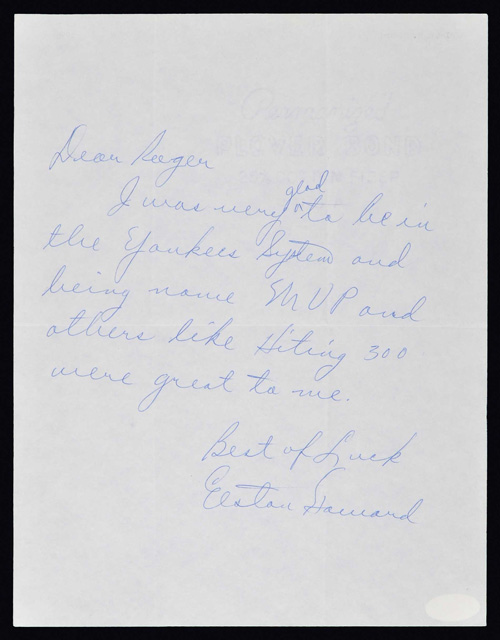 Dear Roger
I was very glad to be in
the Yankees System and
being name MVP and
others like Hiting 300
were great to me.
Best of Luck
Elston Howard